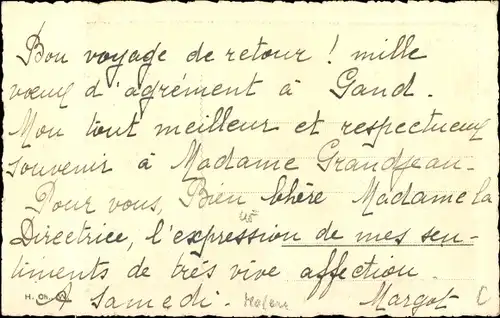 Bon voyage de retour ! mille
vœux d'agrément à Gand.
Mon tout meilleur et respectueux
souvenir à Madame Grandjean.
Pour vous, Bien chère Madame la
Directrice, l'expression de mes sen-
timents de très vive affection.
H. Ch. à samedi. Margot C